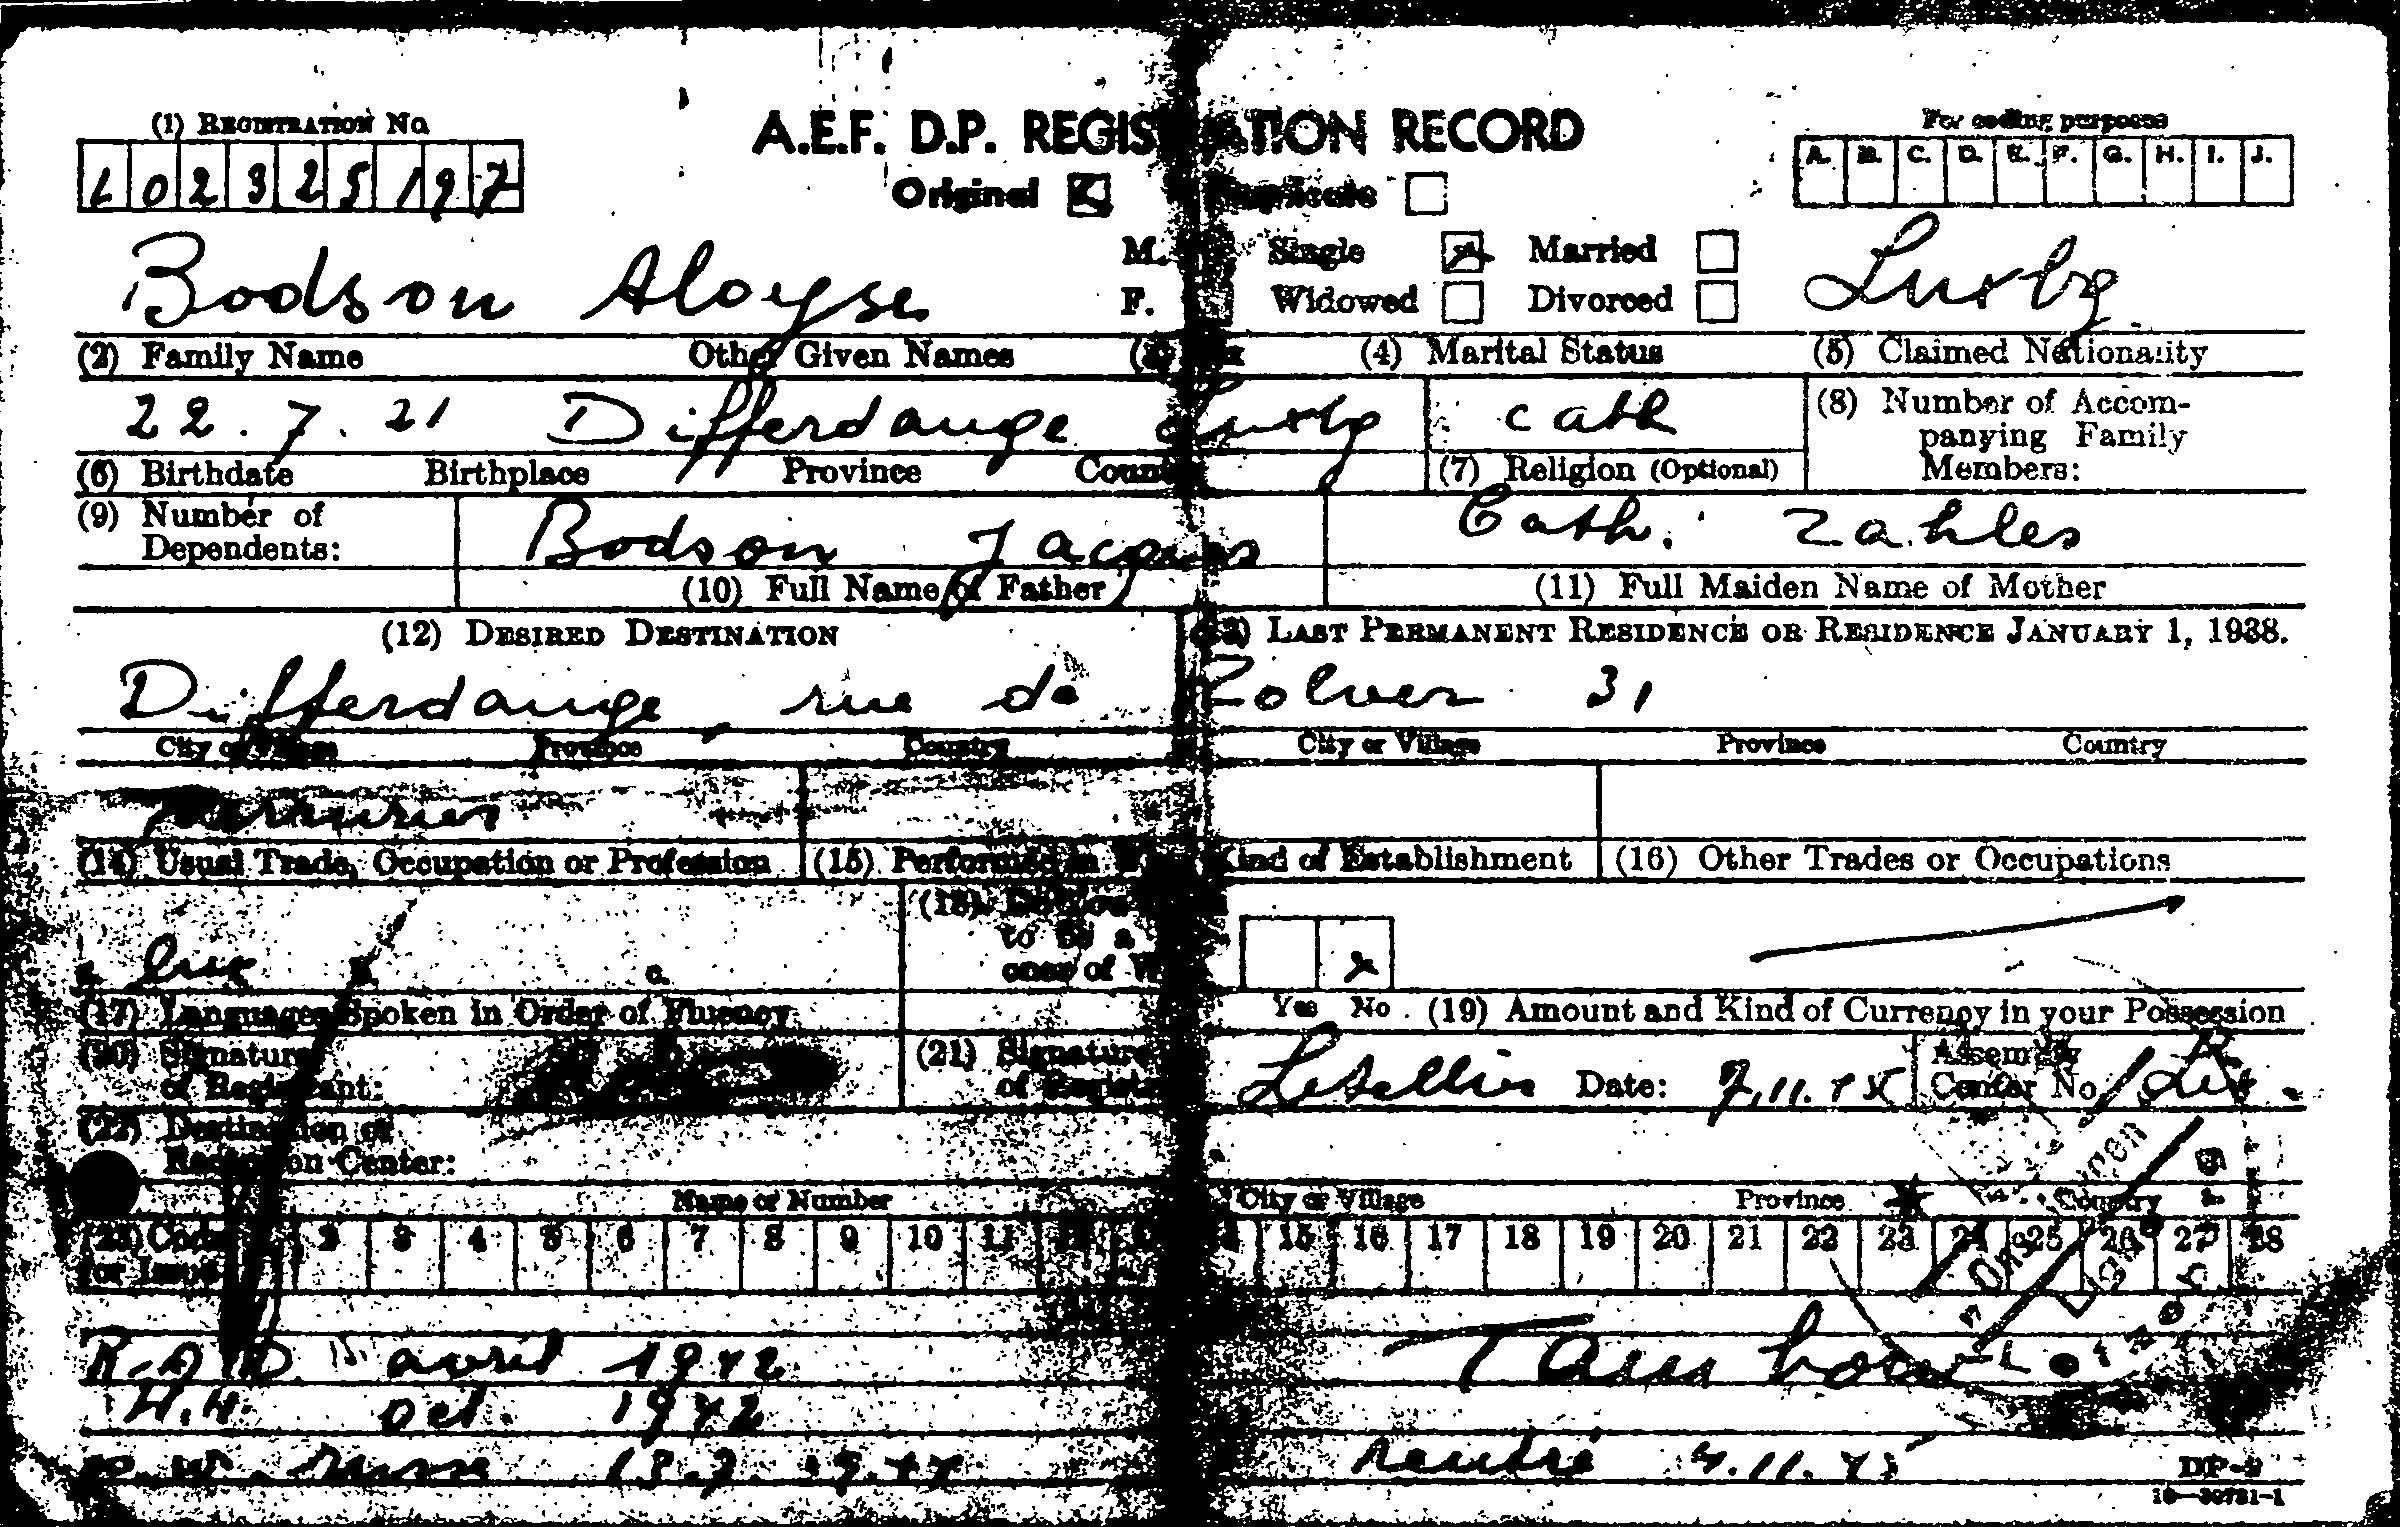 (1) REGISTRATION No.
L 0 2 3 2 5 1 9 7
A.E.F. D.P. REGISTRATION RECORD
For coding purposes
A. B. C. D. E. F. G. H. I. J.
Original Duplicate
Bodson Aloyse
M. Single Married
F. Widowed Divorced
Luxbg
(2) Family Name Other Given Names (3) Sex (4) Marital Status (5) Claimed Nationality
22.7.21 Differdange Luxbg cath
(8) Number of Accompanying Family Members:
(6) Birthdate Birthplace Province Country (7) Religion (Optional)
(9) Number of Dependents:
Bodson Jacques Cath. Zahles
(10) Full Name of Father (11) Full Maiden Name of Mother
(12) DESIRED DESTINATION (13) LAST PERMANENT RESIDENCE OR RESIDENCE JANUARY 1, 1938.
Differdange, rue de Zolver 31
City or Village Province Country City or Village Province Country
(14) Usual Trade, Occupation or Profession (15) Performed in What Kind of Establishment (16) Other Trades or Occupations
a. lux b. c.
(17) Languages Spoken in Order of Fluency
Yes No (19) Amount and Kind of Currency in your Possession
(20) Signature of Registrant: (21) Signature of Registrar: Letellier Date: 7.11.45 Assembly Center No.
(22) Destination or Reception Center:
Name or Number City or Village Province Country
(23) Code for Issue 2 3 4 5 6 7 8 9 10 11 12 13 14 15 16 17 18 19 20 21 22 23 24 25 26 27 28
R.A.D. avril 1942 Tambow
oct. 1942
rentré 7.11.45
DP-2
16—39781-1